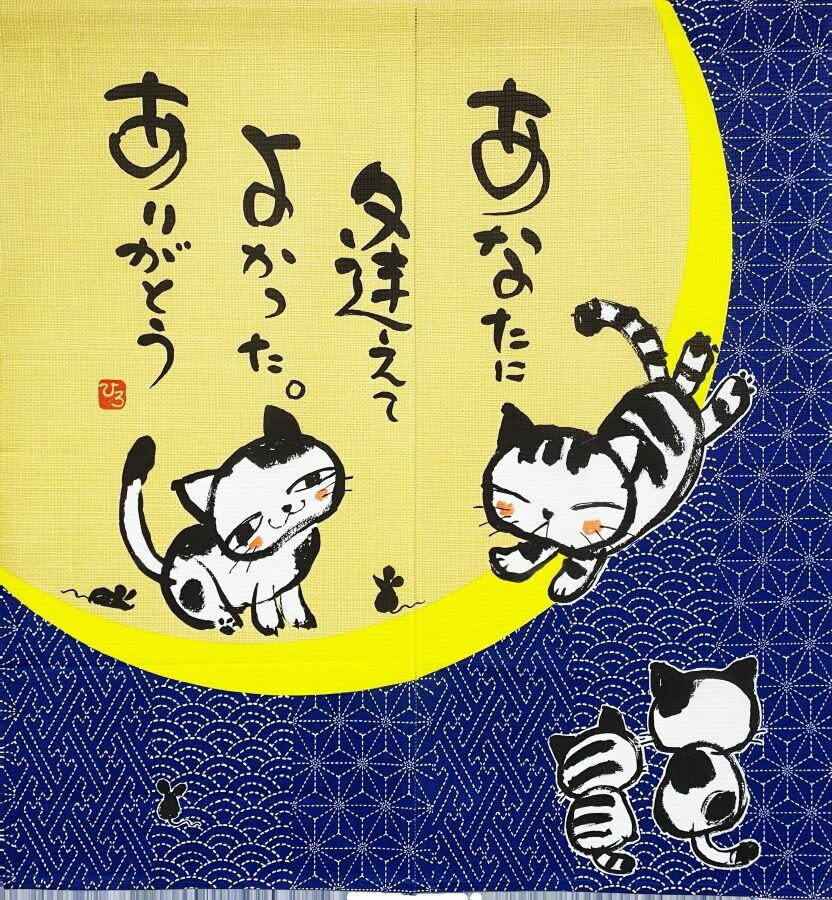 あなたに
逢えて
よかった。
ありがとう
ひろ